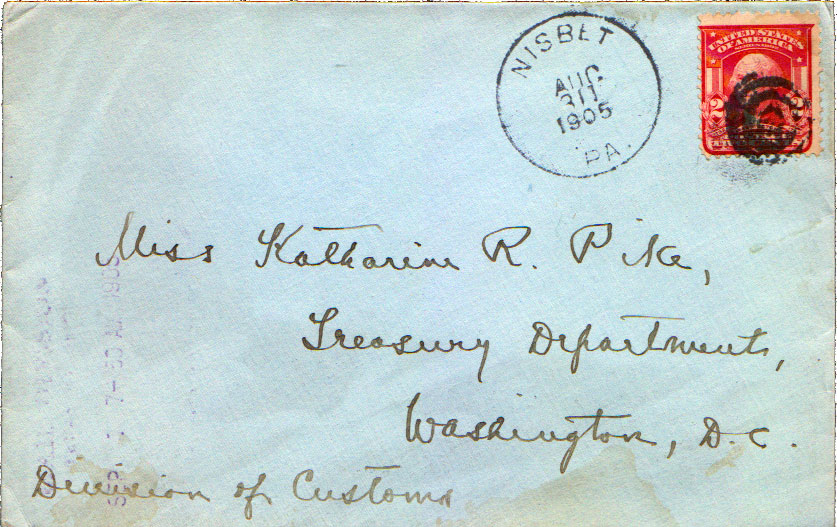 NISBET
AUG
31
1905
PA.
UNITED STATES
OF AMERICA
2 2
Miss Katharine R. Pike,
Treasury Department,
Washington, D.C.
Division of Customs
SEP. 7-30 A 1905